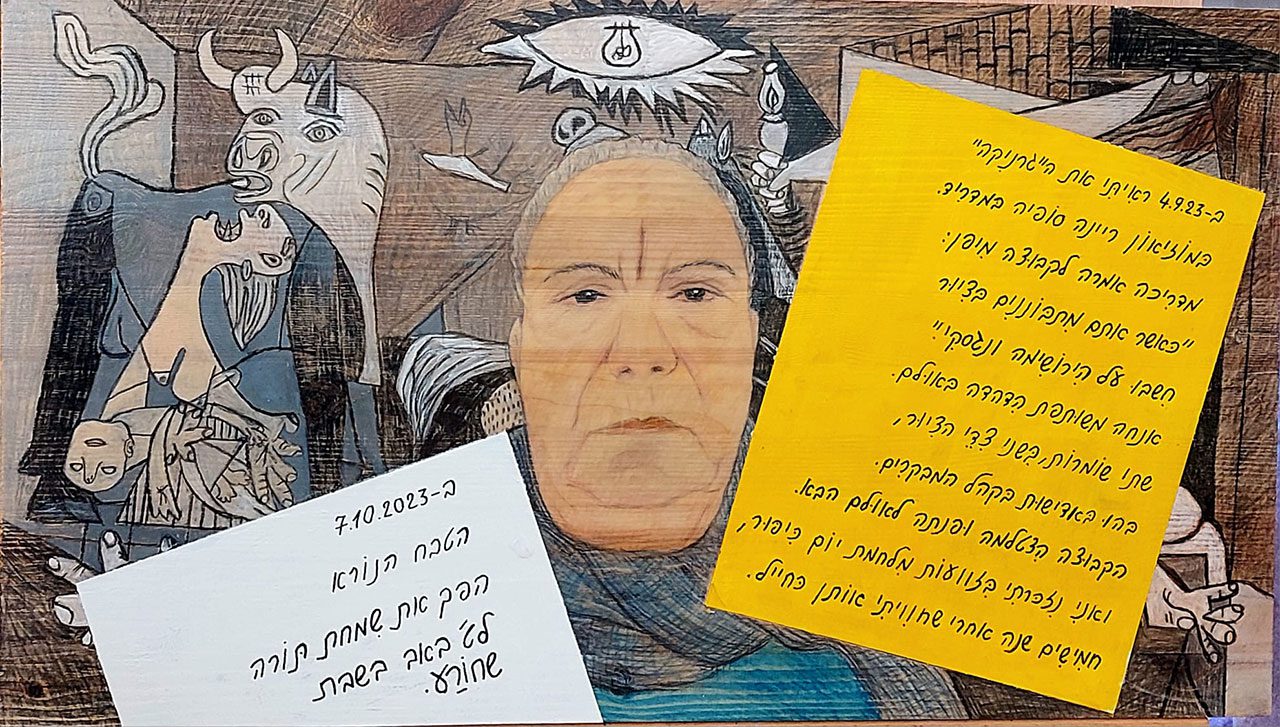 ב-4.9.23 ראִיתִי את ה"גרנִיקה"
במוֹזיאוֹן ריינה סוֹפיה במדרִיד.
מדרִיכה אמרה לקבוּצה מִיפן:
"כאשר אתם מִתבּוֹננִים בּצִיוּר
חִשבוּ על הִירוֹשִימה ונגסקִי"
אנחה משוּתפת הִדהדה באוּלם.
שתי שוֹמרוֹת, בִּשני צִדֵי הצִיוּר,
בהוּ באדִישוּת בקהל המבקרִים.
הקבוּצה הִצטלמה וּפנתה לאוּלם הבא.
ואנִי נִזכּרתִי בִּזוועוֹת מִלחמת יוֹם כִּיפּוּר,
חמִישִים שנה אחרי שחווִיתִי אוֹתן כּחייל.
ב-7.10.2023
הטבח הנוֹרא
הפך את שִׂמחת תוֹרה
לט' באב בשבת
שחוֹרַע.